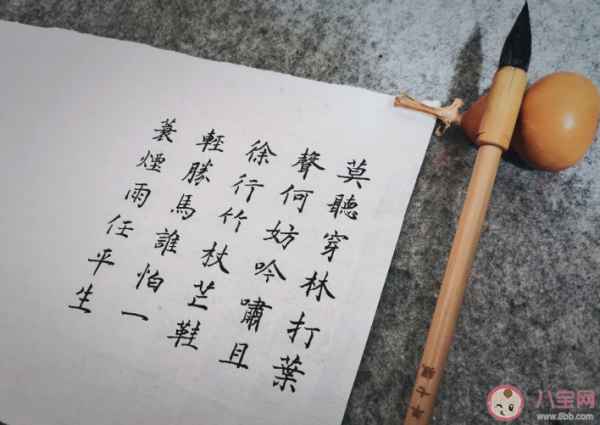 莫聽穿林打葉
聲何妨吟嘯且
徐行竹杖芒鞋
輕勝馬誰怕一
蓑煙雨任平生
八宝网
www.8bb.com